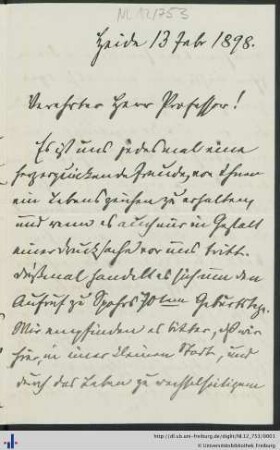 NL 12/753
Heide 13 Febr 1898.
Verehrter Herr Professor!
Es ist uns jedesmal eine
herzerquickende Freude, von Ihnen
ein Lebenszeichen zu erhalten,
und wenn es auch nur in Gestalt
einer Drucksache vor uns tritt.
Diesmal handelt es sich um den
Aufruf zu 70ten Geburtstage.
Wir empfinden es bitter, daß wir
hier, in einer kleinen Stadt, und
durch das Leben zu wechselseitigem
http://dl.ub.uni-freiburg.de/diglit/NL12_753/0001
© Universitätsbibliothek Freiburg